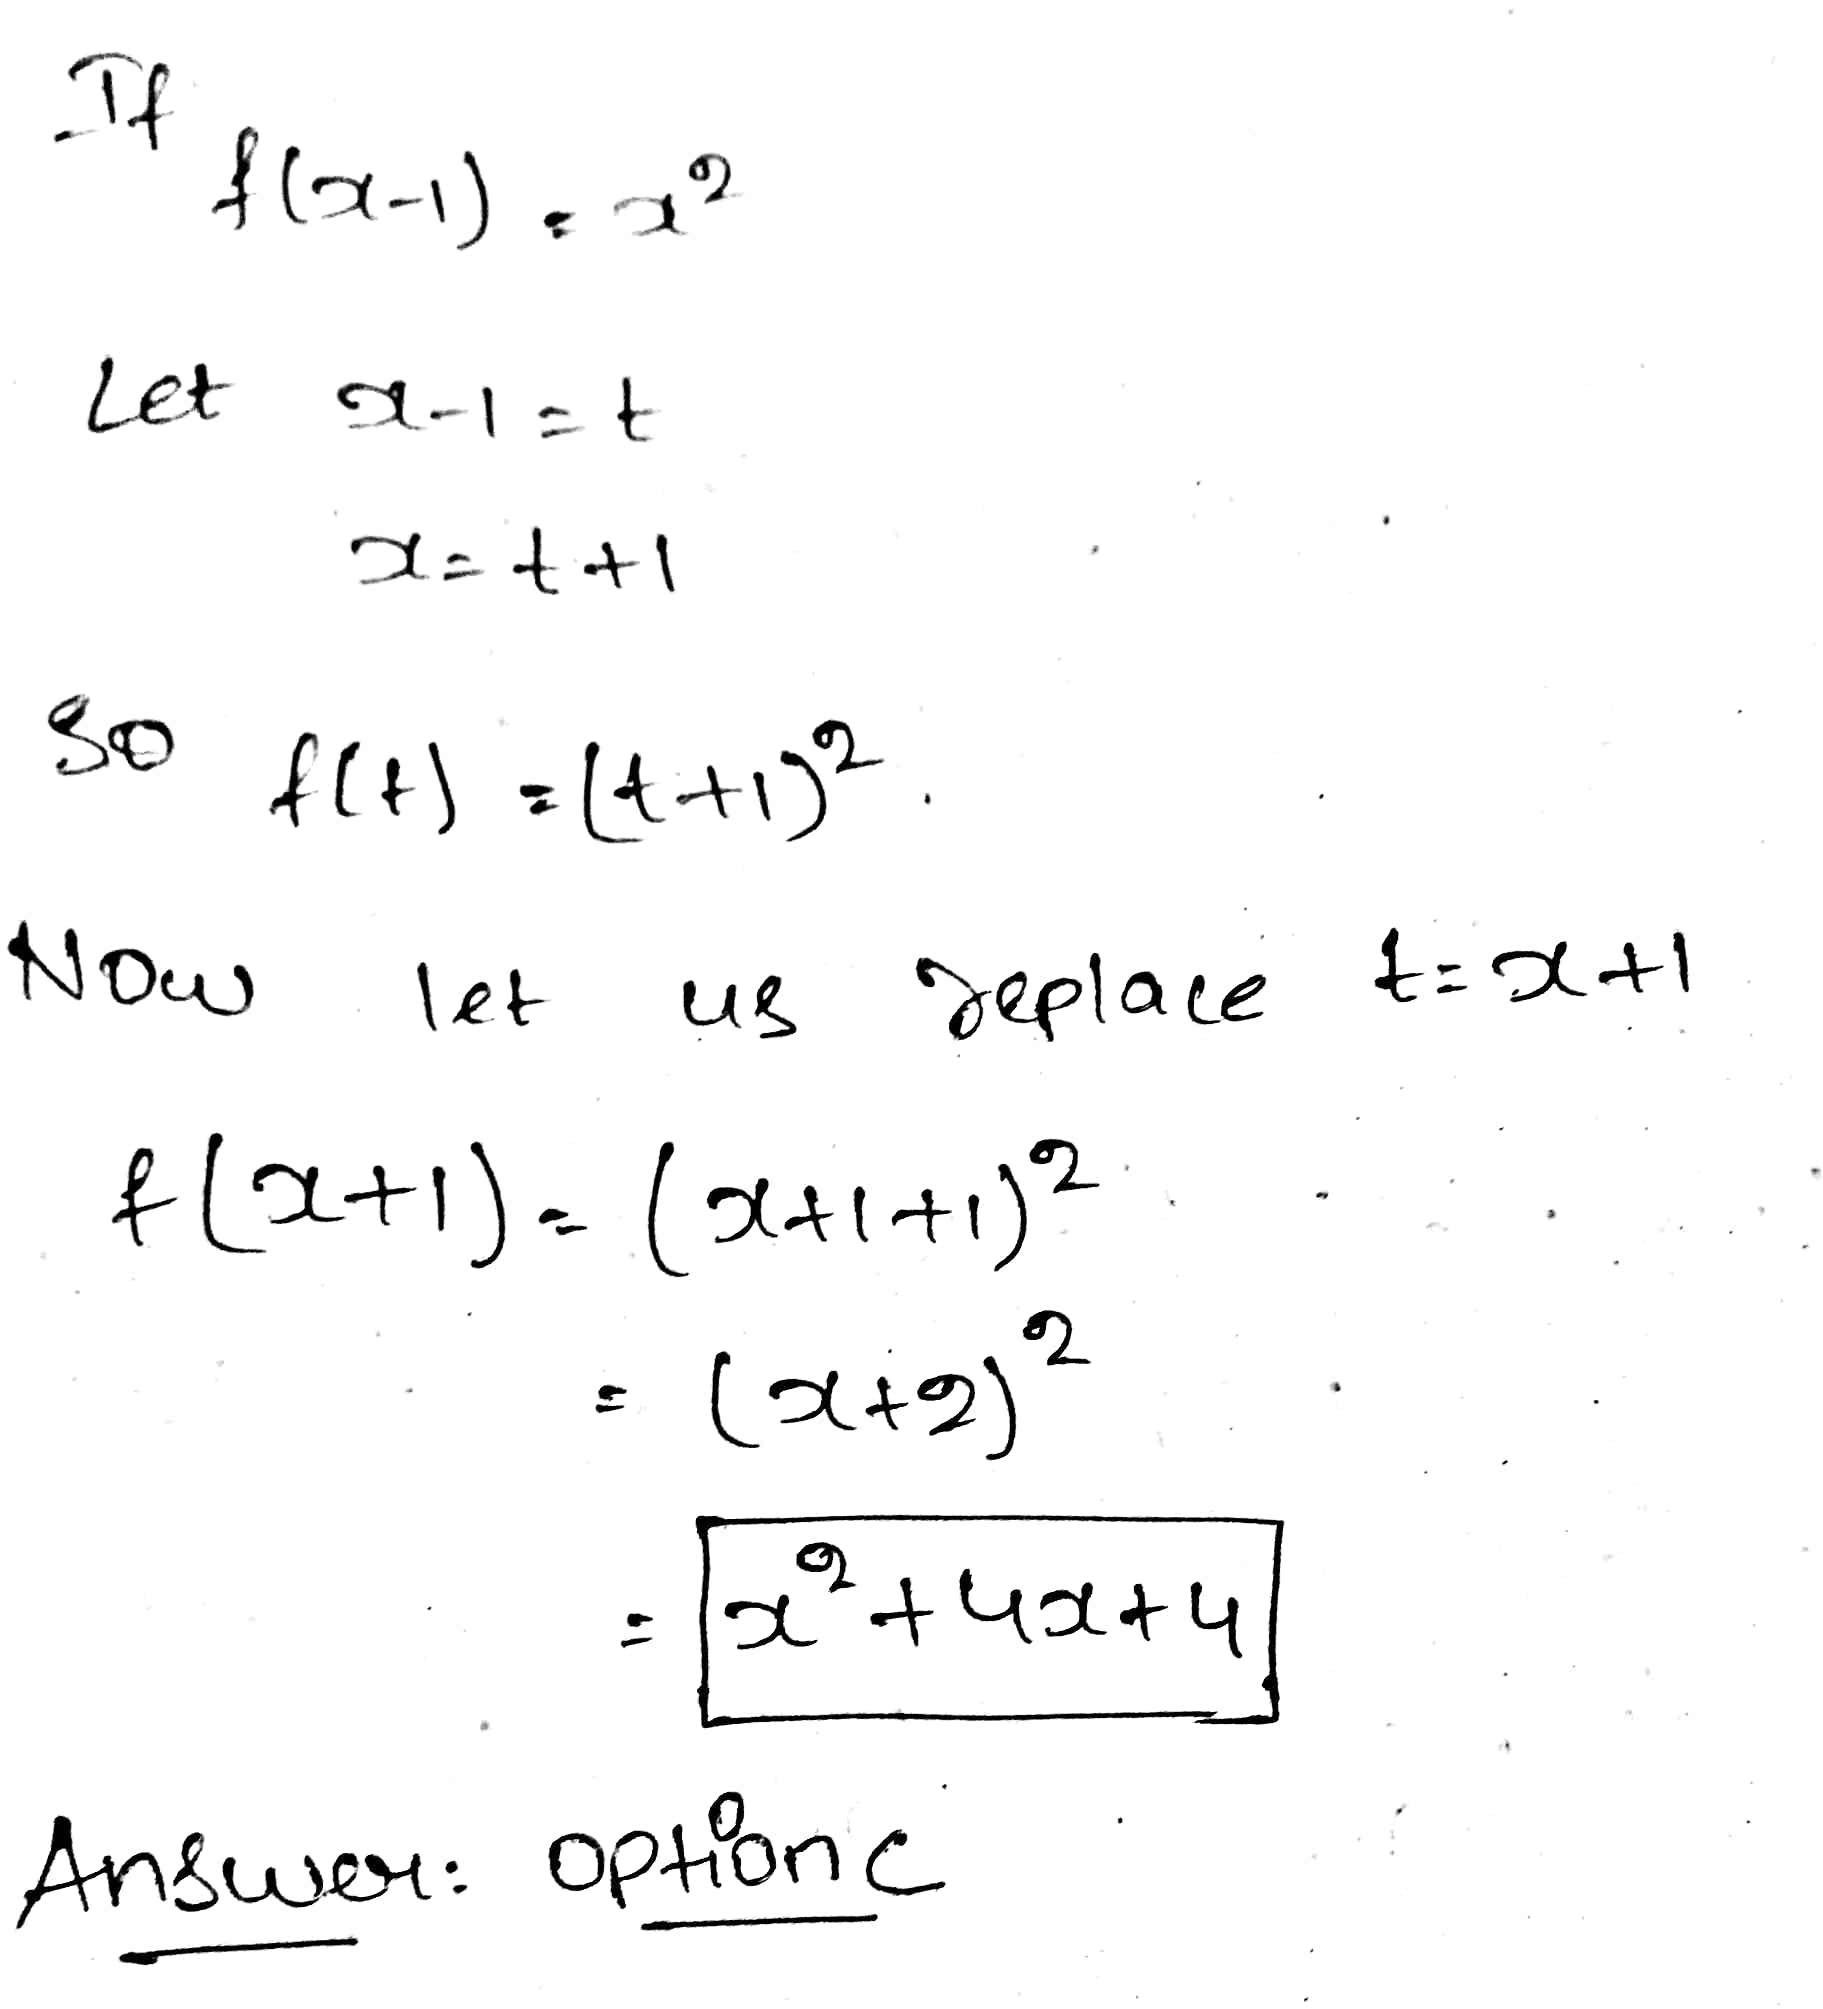 If
f(x-1) = x²
Let x-1 = t
x = t+1
So f(t) = (t+1)².
Now let us replace t = x+1
f(x+1) = (x+1+1)²
= (x+2)²
= x²+4x+4
Answer: option C